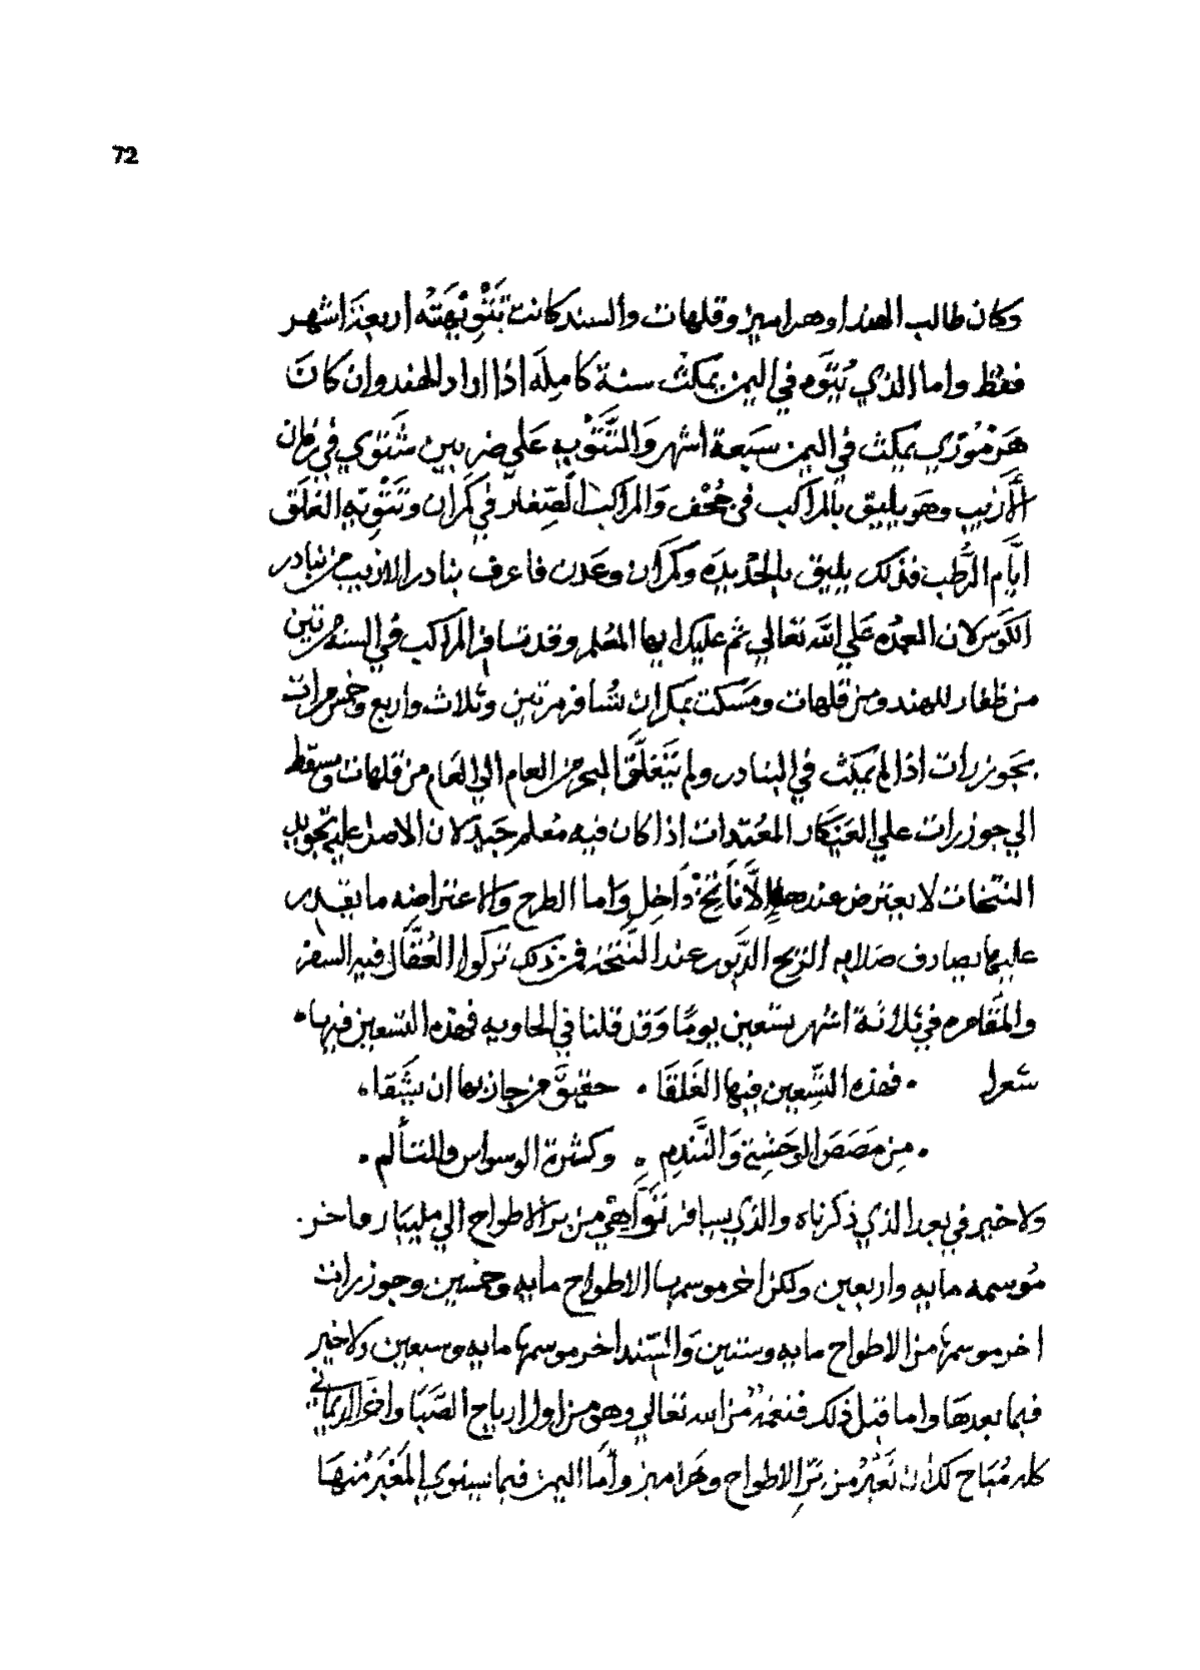 72
وكان طالب الهند او هراميز وقلهات والسند كانت تتويهته اربعة اشهر
فقط واما الذي يتوه في اليمن يمكث سنة كاملة اذا اراد الهند وان كان
هرموزي يمكث في اليمن سبعة اشهر والتتويه على ضربين شتوي في زمان
الأزيب وهو يليق بالمراكب في جحف والمراكب الصغار في كمران وتتويه الغلق
ايام الرطب فذلك يليق بالحديده وكمران وعدن فاعرف بنادر الازيب من بنادر
الكوس لان العمده على الله تعالى ثم عليك ايها المعلم وقد تسافر المراكب في السنة مرتين
من ظفار للهند ومن قلهات ومسكت بمكران تسافر مرتين وثلاث واربع وخمس مرات
بجوزرات اذا لم يمكث في البنادر ولم يتغلق البحر من العام الي العام من قلهات ومسقط
الي جوزرات علي العنكار المعتدات اذا كان فيه معلم جيد لان الاصل عليه تجويد
النتخات لا يعترض عندها إلا ناتخ داخل واما الطرح والاعتراضه ما يقدر
عليها يصادف صلايم الريح الدبور عند النتخة فمن ذلك تركوا العقال فيه السفر
والمقامره في ثلاثة اشهر بتسعين يوما وقد قلنا في الحاويه فهذه التسعين فيها
شعرا فهذه التسعين فيها الغلقا حقيق من جاز بها ان يشقا
من مصص الوحشة والتندم وكثرة الوسواس والتألم
ولا خير في بعد الذي ذكرناه والذي يسافر نواهي من بر الاطواح الي مليبار فاخر
موسمه مايه واربعين ولكن اخر موسمها الاطواح مايه وخمسين وجوزرات
اخر موسمها من الاطواح مايه وستين والسند اخر موسمها مايه وسبعين ولا خير
فيما بعدها واما قبل ذلك فنعمة من الله تعالي وهو من اول ارياح الصبا واخر الريماني
كله مباح لك ان تعبر من بر الاطواح وهراميز وأما اليمن فما يستوي المغبر منها